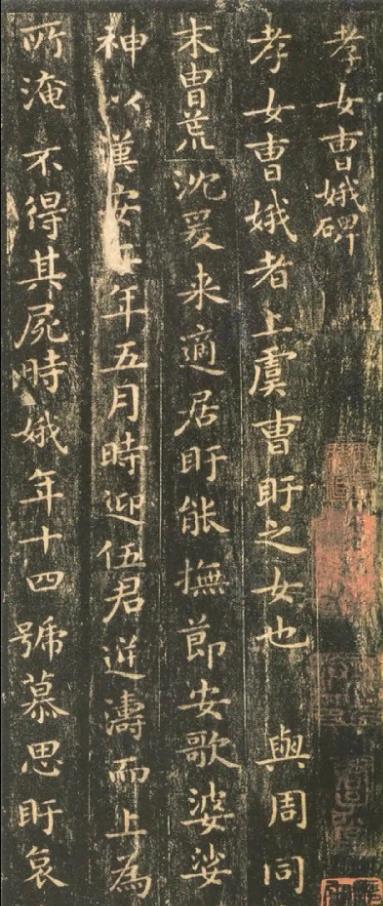 孝女曹娥碑
孝女曹娥者上虞曹盱之女也 與周同
末胄荒沈爰来適居盱能撫節安歌婆娑
神以漢安二年五月時迎伍君逆濤而上為
所淹 不得其屍時娥年十四號慕思盱哀